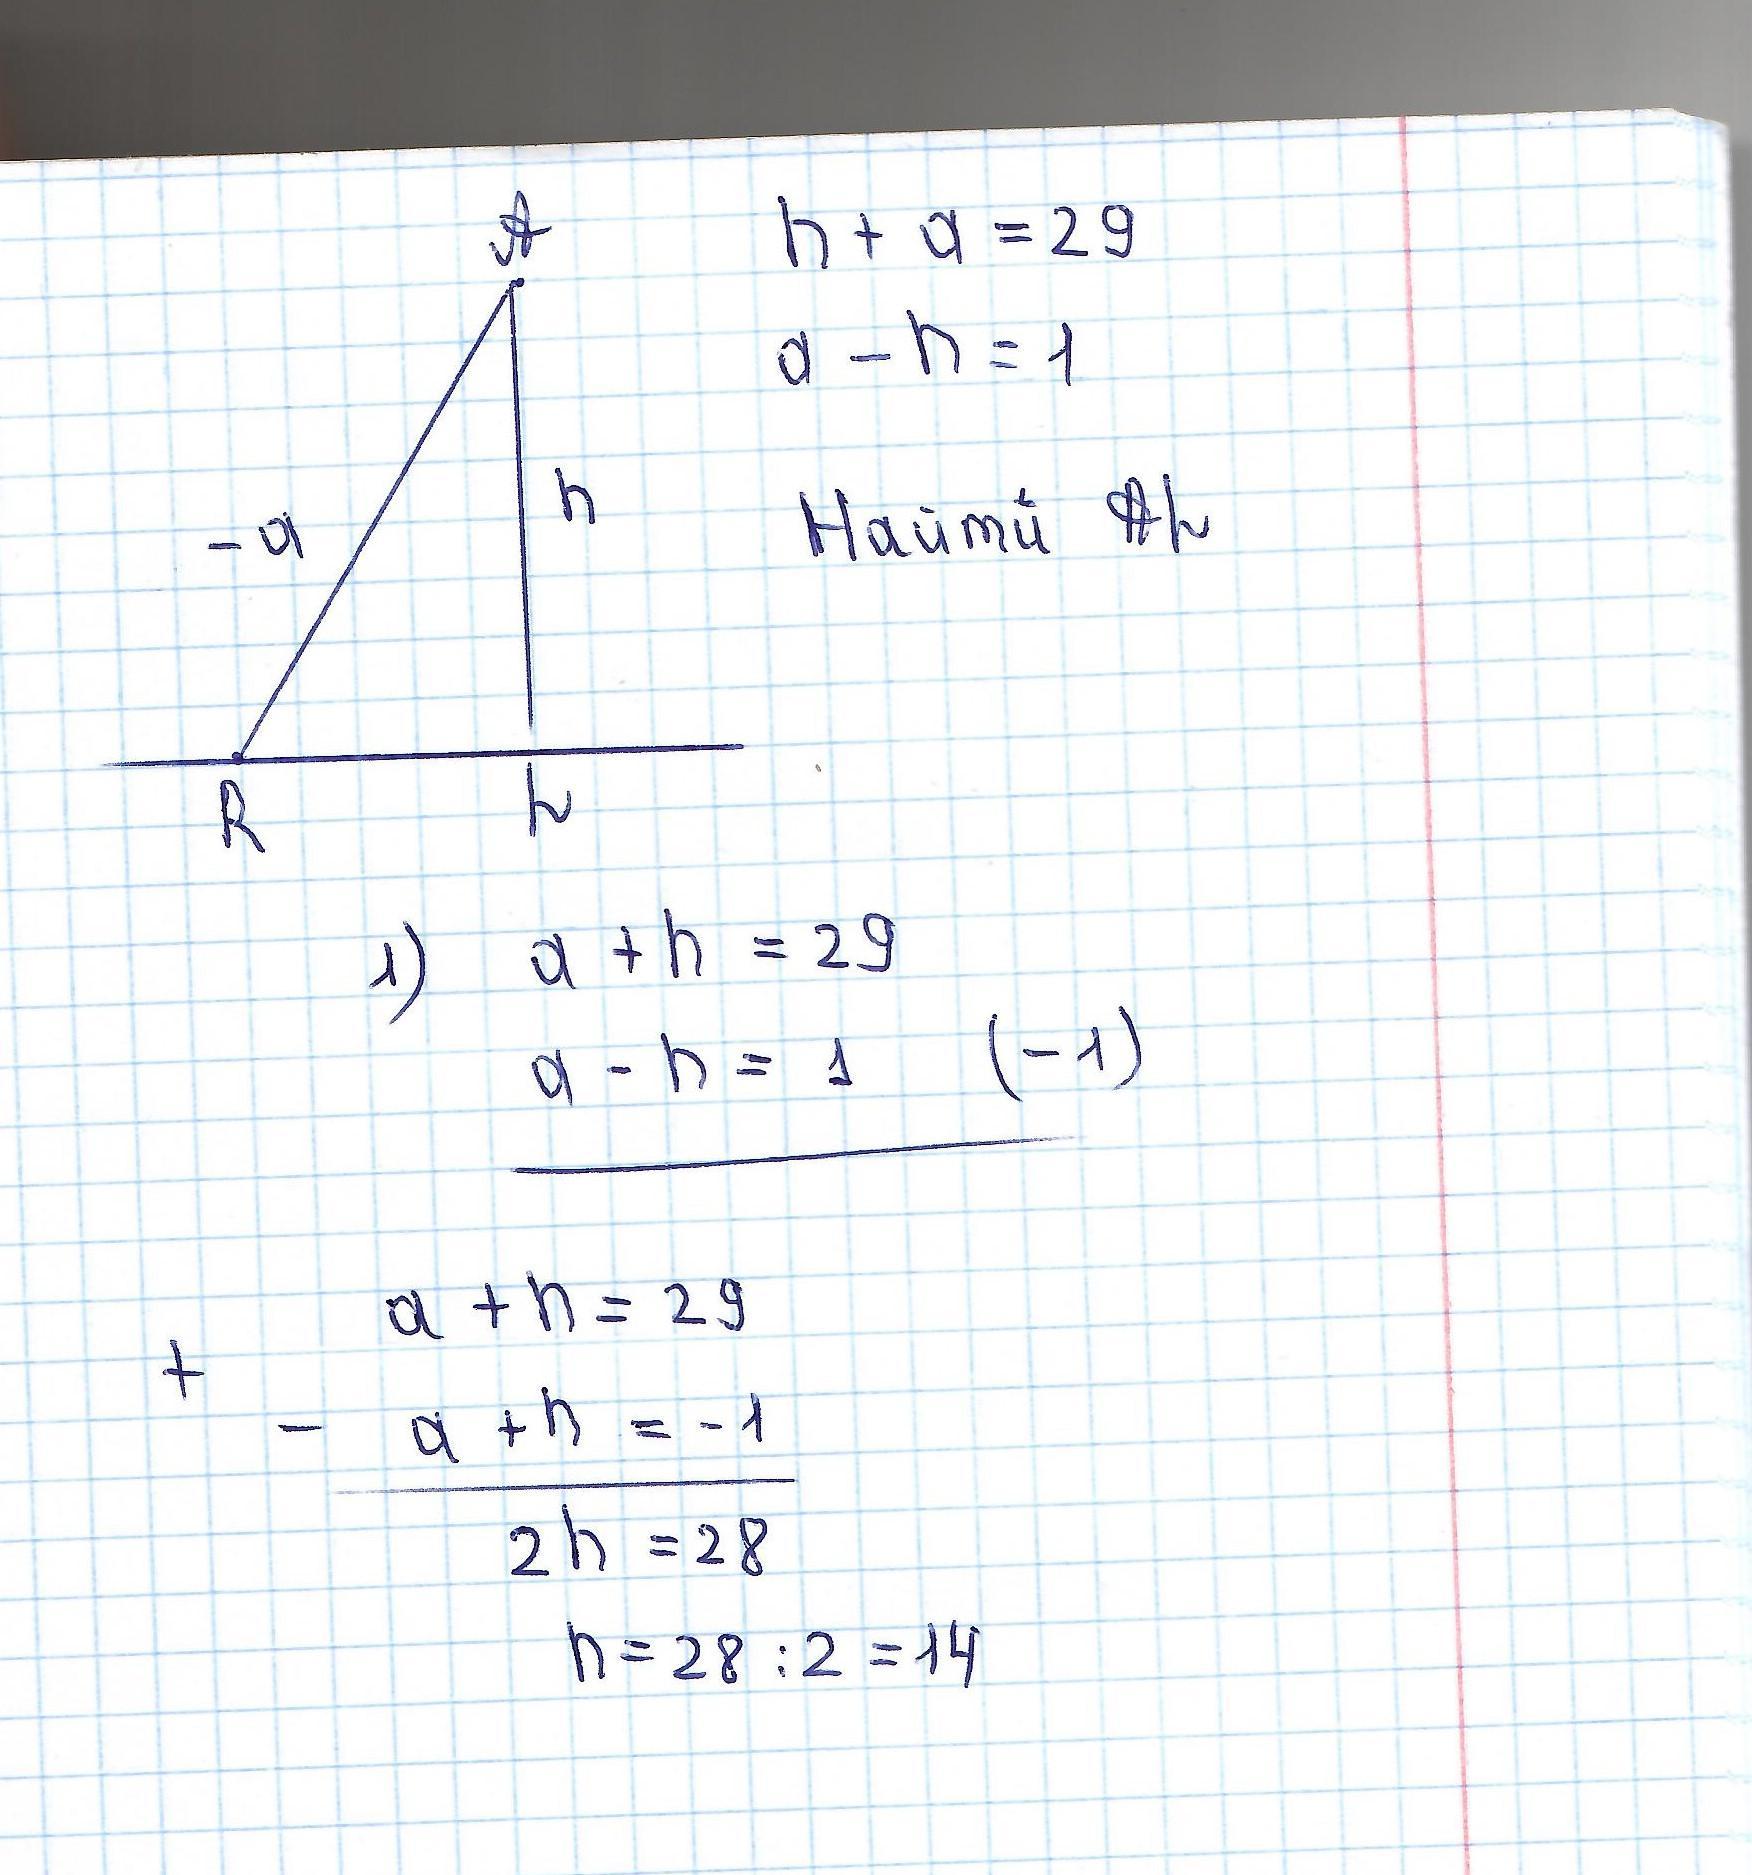 A
h + a = 29
a - h = 1
- a
h
Найти Ah
R
h
1) a + h = 29
a - h = 1 (-1)
a + h = 29
+
- a + h = -1
2h = 28
h = 28 : 2 = 14